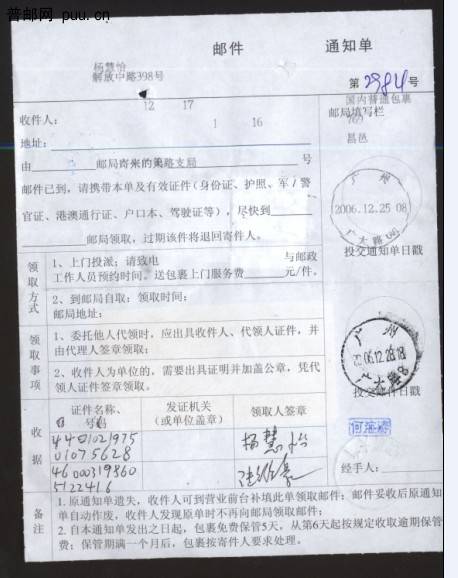 普邮网 www.puu.cn
邮件 通知单
杨慧怡
解放中路398号
第2984号
国内普通包裹
12 17
收件人：
邮局填写栏
1 16
昌邑
地址：
由 邮局寄来的 路支局 号
邮件已到，请携带本单及有效证件（身份证、护照、军/警
官证、港澳通行证、户口本、驾驶证等），尽快到
邮局领取，过期该件将退回寄件人。
广州
2006.12.25 08
广大路
投交通知单日戳
领取方式
1、上门投派；请致电 与邮政
工作人员预约时间。送包裹上门服务费 元/件。
2、到邮局自取；领取时间：
邮局地址：
领取事项
1、委托他人代领时，应出具收件人、代领人证件，并
由代理人签章领取；
2、收件人为单位的，需要出具证明并加盖公章，凭代
领人证件签章领取。
广州
06.12.28.18
投交邮件日戳
收据
证件名称、号码
发证机关
（或单位盖章）
领取人签章
4401021975
01075628
杨慧怡
4600319860
5122416
经手人：
备注
1.原通知单遗失，收件人可到营业前台补填此单领取邮件；邮件妥收后原通知
单自动作废，收件人发现原单时不再向邮局领取邮件；
2.自本通知单发出之日起，包裹免费保管5天，从第6天起按规定收取逾期保管
费；保管期满一个月后，包裹按寄件人要求处理。